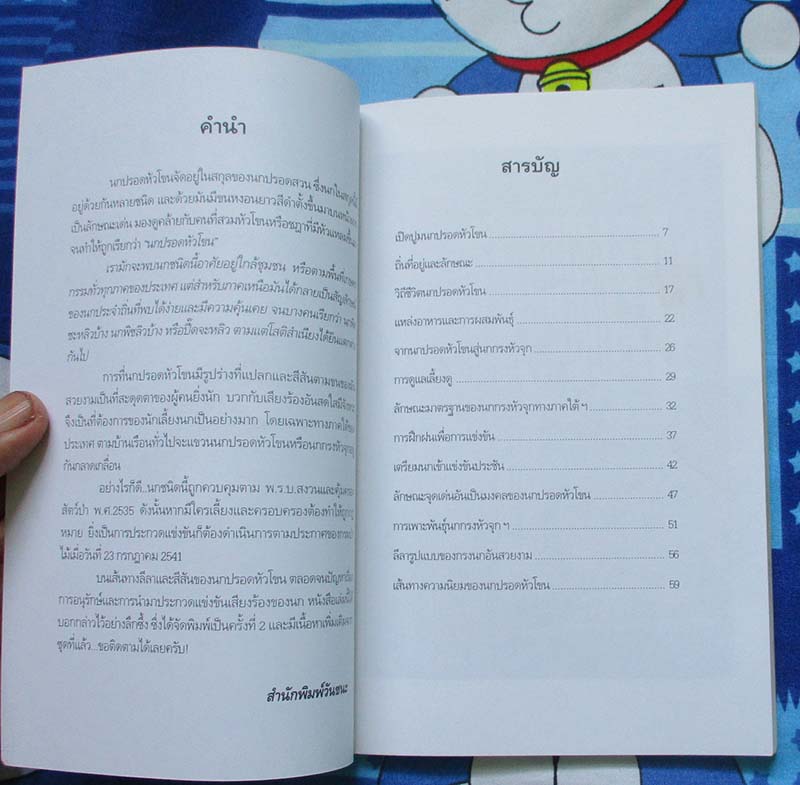 คำนำ
นกปรอดหัวโขนจัดอยู่ในสกุลของนกปรอดสวน ซึ่งนกในสกุลนี้
อยู่ด้วยกันหลายชนิด และด้วยมันมีขนหงอนยาวสีดำตั้งขึ้นมาบน
เป็นลักษณะเด่น มองดูคล้ายกับคนที่สวมหัวโขนหรือชฎาที่มีหัวแหลมขึ้น
จนทำให้ถูกเรียกว่า "นกปรอดหัวโขน"
เรามักจะพบนกชนิดนี้อาศัยอยู่ใกล้ชุมชน หรือตามพื้นที่
กรรมทั่วทุกภาคของประเทศ แต่สำหรับภาคเหนือมันได้กลายเป็น
ของนกประจำถิ่นที่พบได้ง่ายและมีความคุ้นเคย จนบางคนเรียกว่า
ชะหลิวบ้าง นกพิชหลิวบ้าง หรือปี๊ดจะหลิว ตามแต่โสตสำเนียงได้ยิน
กันไป
การที่นกปรอดหัวโขนมีรูปร่างที่แปลกและสีสันตามขนของมัน
สวยงามเป็นที่สะดุดตาของผู้คนยิ่งนัก บวกกับเสียงร้องอันสดใส
จึงเป็นที่ต้องการของนักเลี้ยงนกเป็นอย่างมาก โดยเฉพาะทางภาคใต้ของ
ประเทศ ตามบ้านเรือนทั่วไปจะแขวนนกปรอดหัวโขนหรือนกกรงหัวจุก
กันกลาดเกลื่อน
อย่างไรก็ดี..นกชนิดนี้ถูกควบคุมตาม พ.ร.บ.สงวนและคุ้มครอง
สัตว์ป่า พ.ศ.2535 ดังนั้นหากมีใครเลี้ยงและครอบครองต้องทำให้ถูก
หมาย ยิ่งเป็นการประกวดแข่งขันก็ต้องดำเนินการตามประกาศของ
ไม้เมื่อวันที่ 23 กรกฎาคม 2541
บนเส้นทางลีลาและสีสันของนกปรอดหัวโขน ตลอดจน
การอนุรักษ์และการนำมาประกวดแข่งขันเสียงร้องของนก หนังสือเล่มนี้
บอกกล่าวไว้อย่างลึกซึ้ง ซึ่งได้จัดพิมพ์เป็นครั้งที่ 2 และมีเนื้อหาเพิ่มเติม
ชุดที่แล้ว...ขอติดตามได้เลยครับ!
สำนักพิมพ์วันชนะ
สารบัญ
เปิดปูมนกปรอดหัวโขน 7
ถิ่นที่อยู่และลักษณะ 11
วิถีชีวิตนกปรอดหัวโขน 17
แหล่งอาหารและการผสมพันธุ์ 22
จากนกปรอดหัวโขนสู่นกกรงหัวจุก 26
การดูแลเลี้ยงดู 29
ลักษณะมาตรฐานของนกกรงหัวจุกทางภาคใต้ ฯ 32
การฝึกฝนเพื่อการแข่งขัน 37
เตรียมนกเข้าแข่งขันประชัน 42
ลักษณะจุดเด่นอันเป็นมงคลของนกปรอดหัวโขน 47
การเพาะพันธุ์นกกรงหัวจุก ฯ 51
ลีลารูปแบบของกรงนกอันสวยงาม 56
เส้นทางความนิยมของนกปรอดหัวโขน 59